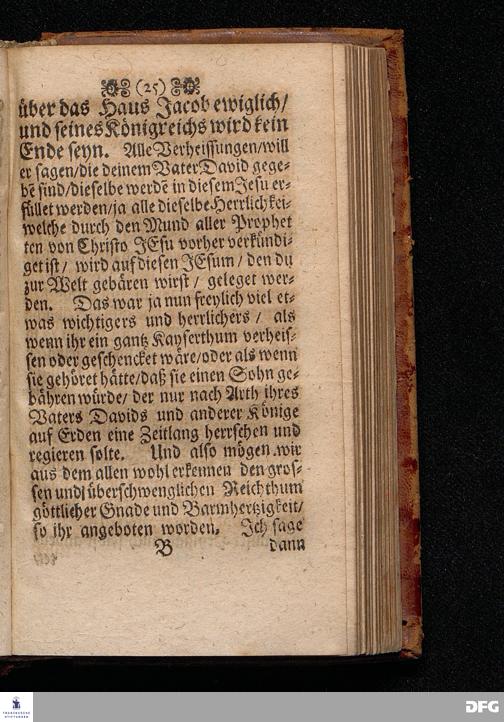 (25)
über das Haus Jacob ewiglich/
und seines Königreichs wird kein
Ende seyn. Alle Verheissungen/will
er sagen/die deinem Vater David gege-
bē sind/dieselbe werdē in diesem Jesu er-
füllet werden/ja alle dieselbe Herrlichkei-
welche durch den Mund aller Prophet
ten von Christo JEsu vorher verkündi-
get ist/ wird auf diesen JEsum/ den du
zur Welt gebären wirst/ geleget wer-
den. Das war ja nun freylich viel et-
was wichtigers und herrlichers/ als
wenn ihr ein gantz Kayserthum verheis-
sen oder geschencket wäre/oder als wenn
sie gehöret hätte/daß sie einen Sohn ge-
bähren würde/ der nur nach Arth ihres
Vaters Davids und anderer Könige
auf Erden eine Zeitlang herrschen und
regieren solte. Und also mögen wir
aus dem allen wohl erkennen den gros-
sen und überschwenglichen Reichthum
göttlicher Gnade und Barmhertzigkeit/
so ihr angeboten worden. Ich sage
B dann
FRANCKESCHE STIFTUNGEN
DFG